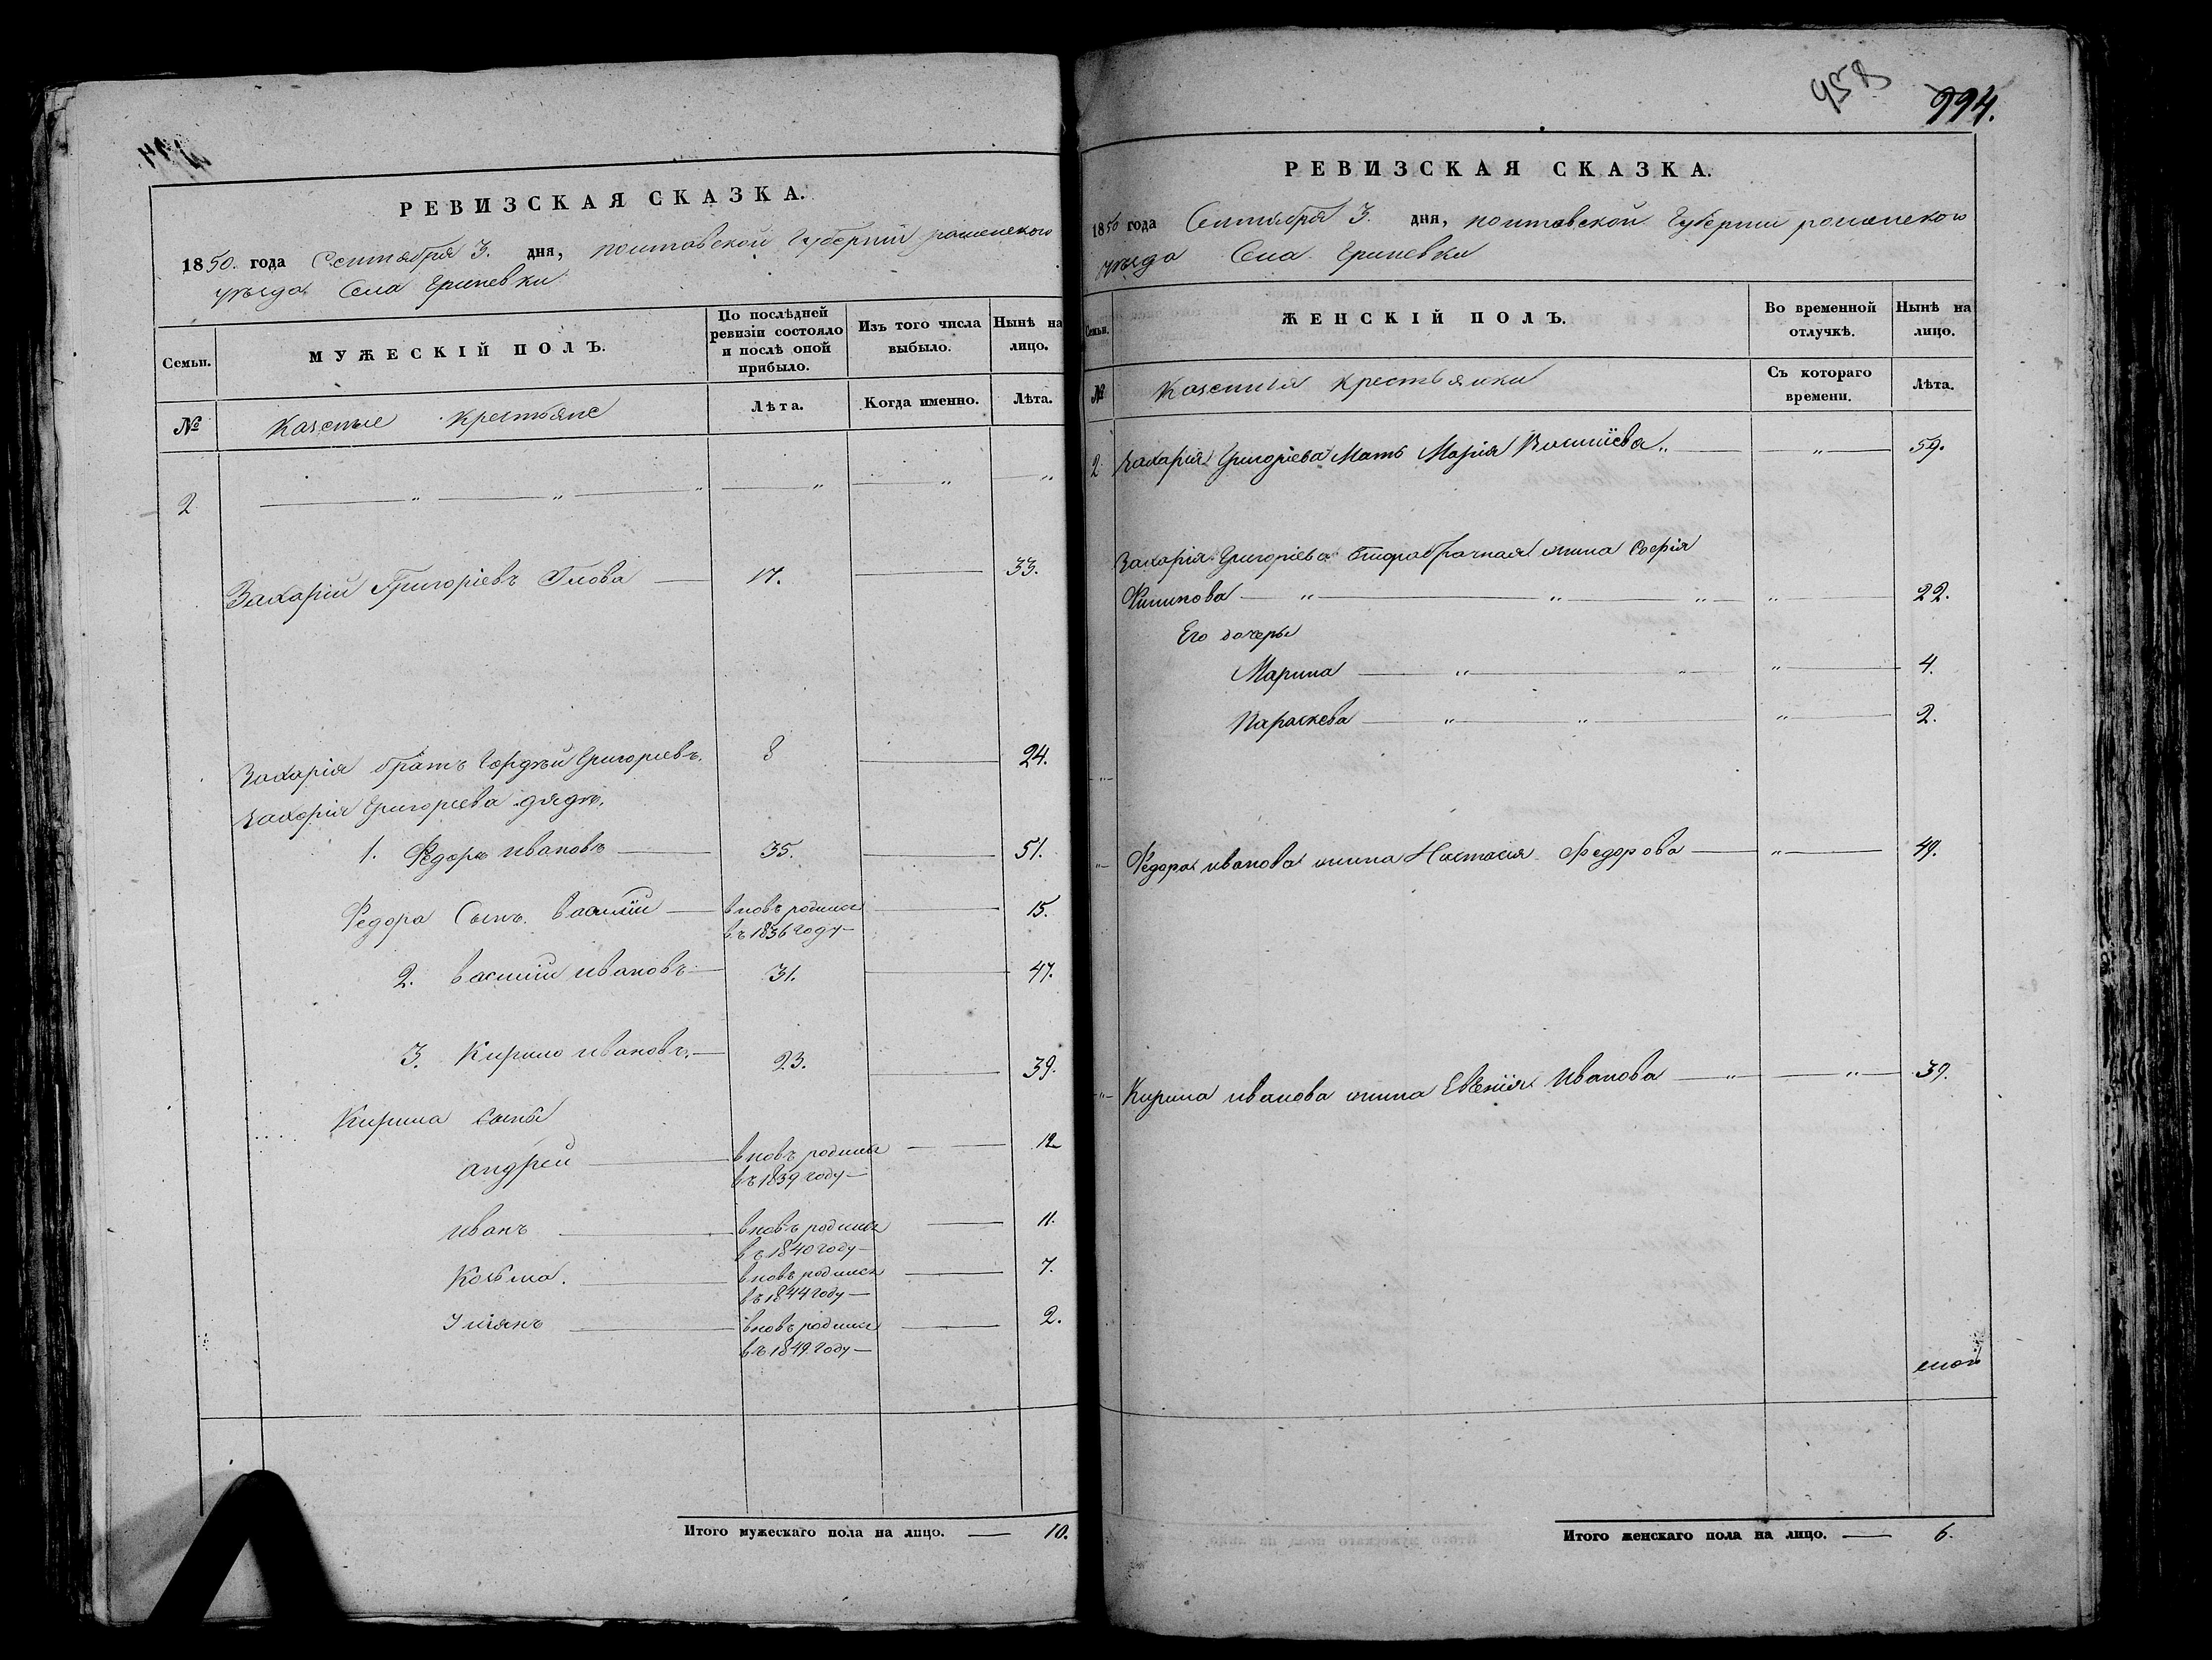 РЕВИЗСКАЯ СКАЗКА.
1850. года Сентября 3. дня, полтавской Губернiи роменского
уѣзда Села Грипевки
Семьи.
МУЖЕСКІЙ ПОЛЪ.
По послѣдней ревизіи состояло и послѣ оной прибыло.
Изъ того числа выбыло.
Нынѣ на лицо.
№
Казеные Крестьяне
Лѣта.
Когда именно.
Лѣта.
2
Захарiй Григорiевъ Глова 17. 33.
Захарiя братъ Гордѣй Григорiевъ. 8 24.
Захарiя Григорiева дядѣ.
1. Федоръ Ивановъ 35. 51.
Федора Сынъ Василiй вновъ родился 15.
въ 1836 году
2. Василiй Ивановъ 31. 47.
3. Кирило Ивановъ. 23. 39.
Кирила Сыны
Андрей вновъ родился 12
въ 1839 году
Иванъ вновъ родился 11.
въ 1840 году
Козьма. вновъ родился 7.
въ 1844 году
Улiянъ вновъ родился 2.
въ 1849 году
Итого мужескаго пола на лицо. 10.
958
994.
РЕВИЗСКАЯ СКАЗКА.
1850 года Сентября 3. дня, полтавской Губернiи роменского
уѣзда Села Грипевки
Семьи.
ЖЕНСКІЙ ПОЛЪ.
Во временной отлучкѣ.
Нынѣ на лицо.
№
Казенныя крестьянки
Съ котораго времени.
Лѣта.
2 Захарiя Григорiева Мать Марiя Василiева 59.
Захарiя Григорiева второбрачная жина Софiя
Филипова 22.
Его дочеры
Марина 4.
Параскева 2.
Федора Иванова жина Настасiя Федорова 49.
Кирила Иванова жина Евгенiя Иванова 39.
Итого женскаго пола на лицо. 6.